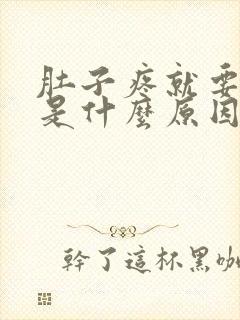 肚子疼就要
是什麼原因
幹了這杯黑咖